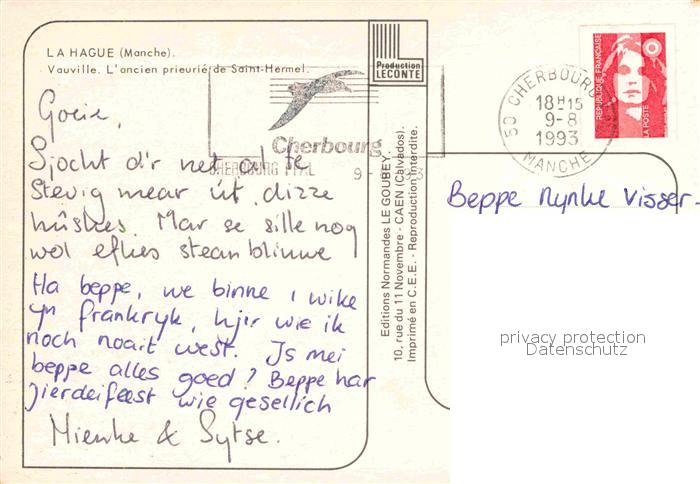 LA HAGUE (Manche).
Vauville. L'ancien prieurié de Saint-Hermel.
Production
LECONTE
Goeie,
Sjocht d'r net al te
stevig mear út, dizze
húskes. Mar se sille nog
wol efkes stean bliuwe
Ha beppe, we binne 1 wike
yn frankryk, hjir wie ik
noch noait west. Is mei
beppe alles goed? Beppe har
jierdeifeest wie gesellich
Mienke & Sytse.
Cherbourg
CHERBOURG PPAL
9-8
Editions Normandes LE GOUBEY.
10, rue du 11 Novembre - CAEN (Calvados).
Imprimé en C.E.E. - Reproduction interdite.
50 CHERBOURG
18H15
9-8
1993
MANCHE
REPUBLIQUE FRANÇAISE
LA POSTE
Beppe Nynke Visser-
privacy protection
Datenschutz